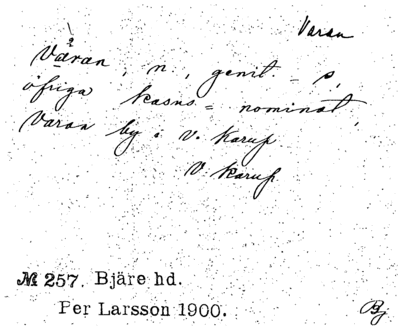 Varan
Våran, n., genit. = s,
öfriga kasus = nominat,
Varan by i V. Karup.
V. Karup.
№ 257. Bjäre hd.
Per Larsson 1900.
Bj